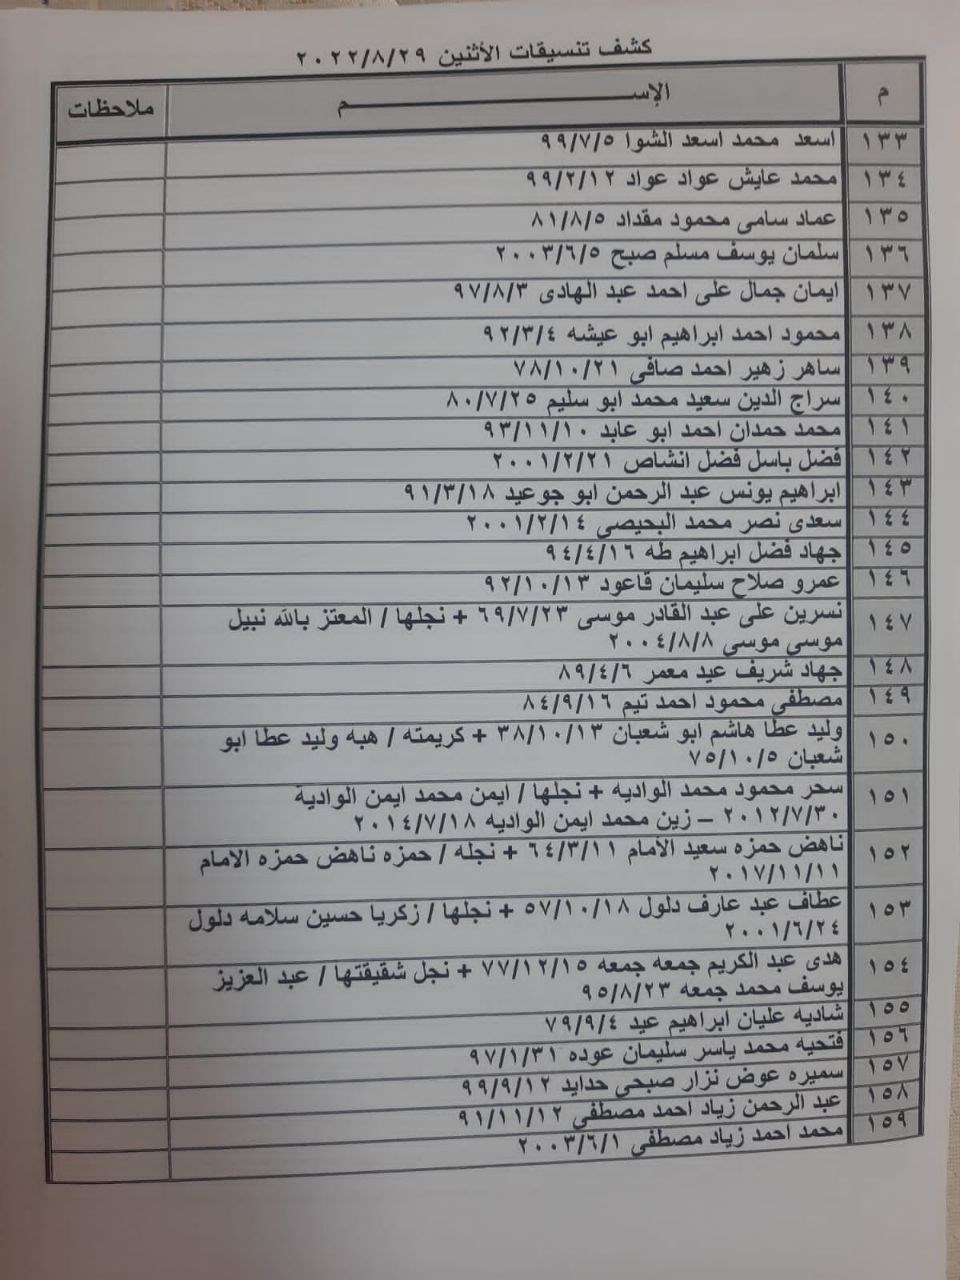 كشف تنسيقات الأثنين ٢٠٢٢/٨/٢٩
م الإســـــــــم ملاحظات
١٣٣ اسعد محمد اسعد الشوا ٩٩/٧/٥
١٣٤ محمد عايش عواد عواد ٩٩/٢/١٢
١٣٥ عماد سامى محمود مقداد ٨١/٨/٥
١٣٦ سلمان يوسف مسلم صبح ٢٠٠٣/٦/٥
١٣٧ ايمان جمال على احمد عبد الهادى ٩٧/٨/٣
١٣٨ محمود احمد ابراهيم ابو عيشه ٩٢/٣/٤
١٣٩ ساهر زهير احمد صافى ٧٨/١٠/٢١
١٤٠ سراج الدين سعيد محمد ابو سليم ٨٠/٧/٢٥
١٤١ محمد حمدان احمد ابو عابد ٩٣/١١/١٠
١٤٢ فضل باسل فضل انشاص ٢٠٠١/٢/٢١
١٤٣ ابراهيم يونس عبد الرحمن ابو جوعيد ٩١/٣/١٨
١٤٤ سعدى نصر محمد البحيصى ٢٠٠١/٢/١٤
١٤٥ جهاد فضل ابراهيم طه ٩٤/٤/١٦
١٤٦ عمرو صلاح سليمان قاعود ٩٢/١٠/١٣
١٤٧ نسرين على عبد القادر موسى ٦٩/٧/٢٣ + نجلها / المعتز بالله نبيل
موسى موسى ٢٠٠٤/٨/٨
١٤٨ جهاد شريف عيد معمر ٨٩/٤/٦
١٤٩ مصطفى محمود احمد تيم ٨٤/٩/١٦
١٥٠ وليد عطا هاشم ابو شعبان ٣٨/١٠/١٣ + كريمته / هبه وليد عطا ابو
شعبان ٧٥/١٠/٥
١٥١ سحر محمود محمد الواديه + نجلها / ايمن محمد ايمن الوادية
٢٠١٢/٧/٣٠ – زين محمد ايمن الواديه ٢٠١٤/٧/١٨
١٥٢ ناهض حمزه سعيد الامام ٦٤/٣/١١ + نجله / حمزه ناهض حمزه الامام
٢٠١٧/١١/١١
١٥٣ عطاف عبد عارف دلول ٥٧/١٠/١٨ + نجلها / زكريا حسين سلامه دلول
٢٠٠١/٦/٢٤
١٥٤ هدى عبد الكريم جمعه جمعه ٧٧/١٢/١٥ + نجل شقيقتها / عبد العزيز
يوسف محمد جمعه ٩٥/٨/٢٣
١٥٥ شاديه عليان ابراهيم عيد ٧٩/٩/٤
١٥٦ فتحيه محمد ياسر سليمان عوده ٩٧/١/٣١
١٥٧ سميره عوض نزار صبحى حدايد ٩٩/٩/١٢
١٥٨ عبد الرحمن زياد احمد مصطفى ٩١/١١/١٢
١٥٩ محمد احمد زياد مصطفى ٢٠٠٣/٦/١